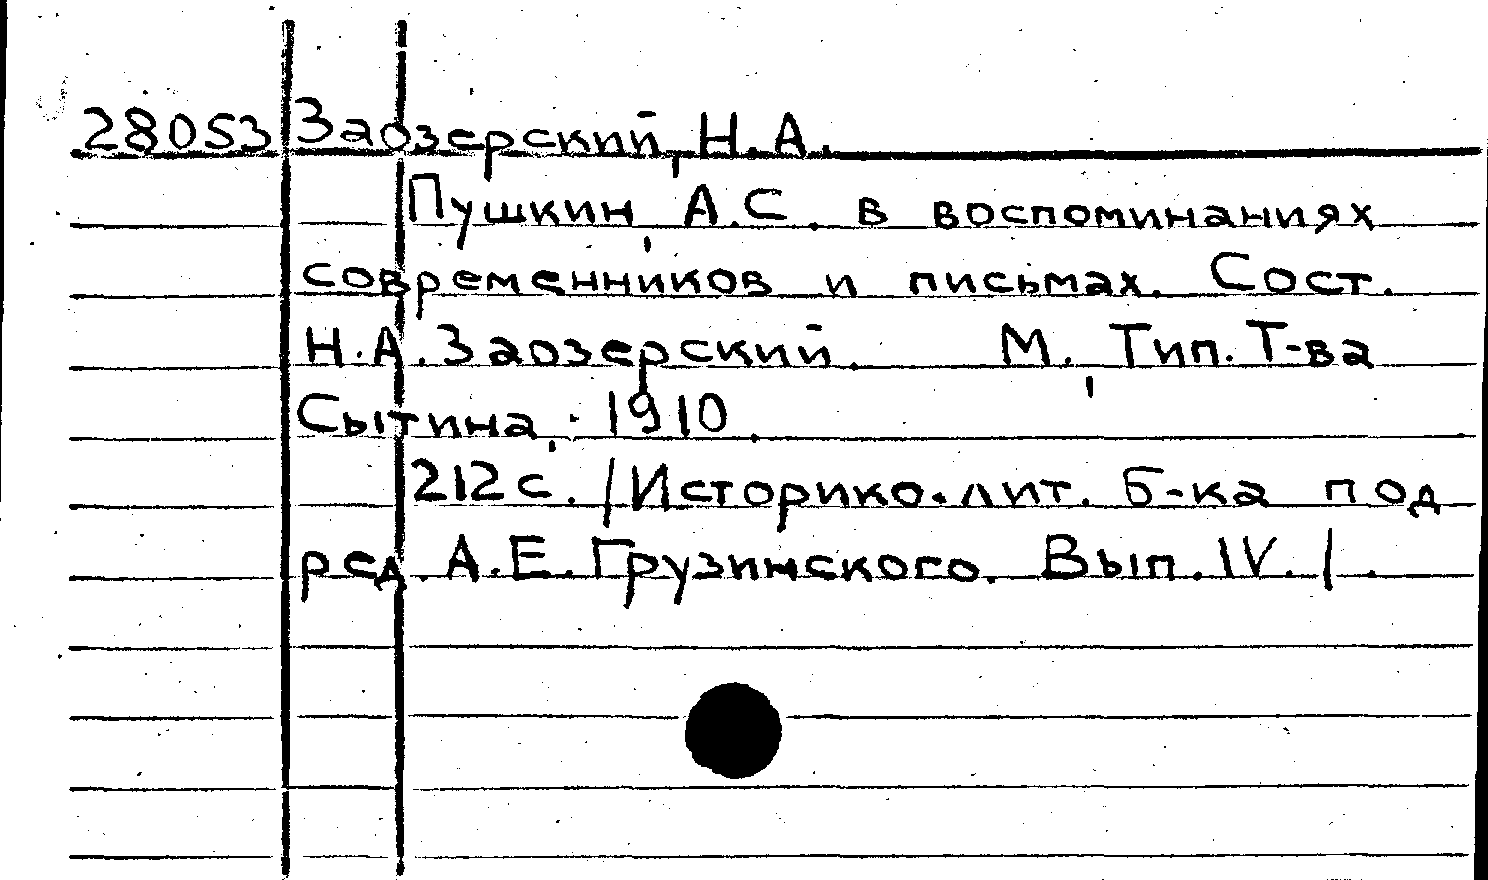 28053 Заозерский, Н.А.
Пушкин, А.С. в воспоминаниях
современников и письмах. Сост.
Н.А.Заозерский. М., Тип. Т-ва
Сытина, 1910.
212 с. /Историко-лит. Б-ка под
ред. А.Е.Грузинского. Вып. IV./.